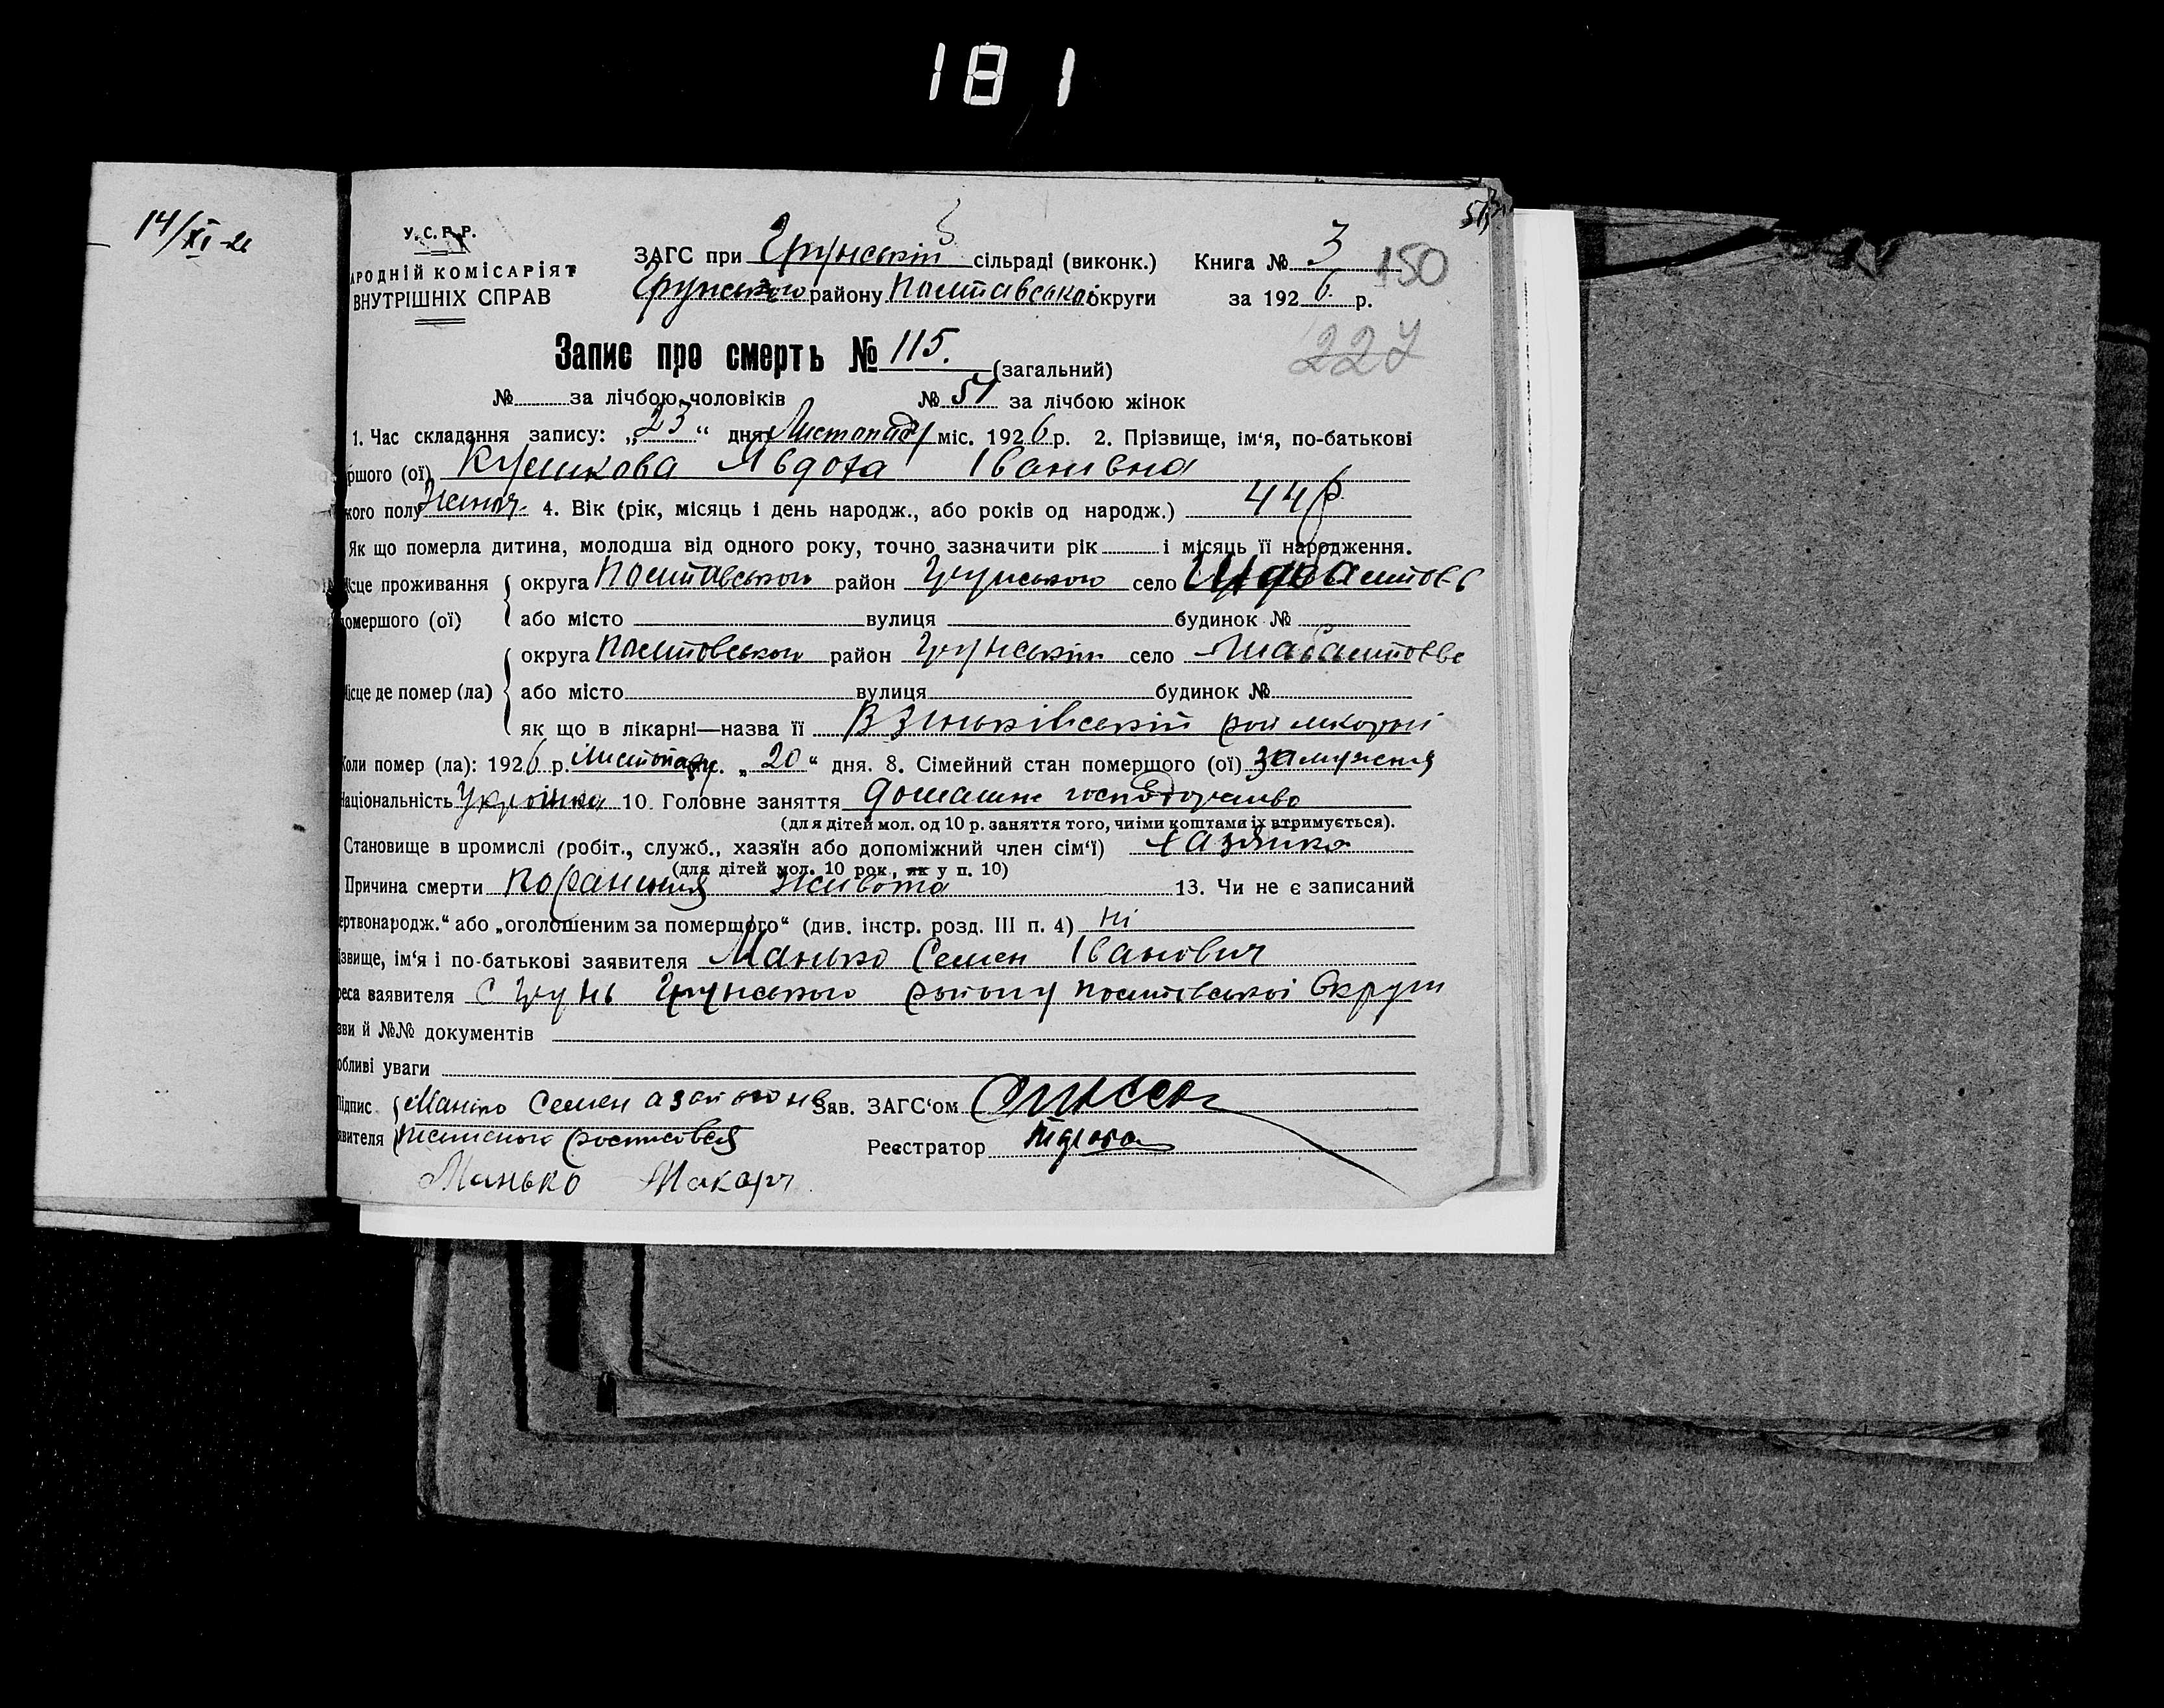 181
14/XI-26
У.С.Р.Р.
АРОДНІЙ КОМІСАРІЯТ
ВНУТРІШНІХ СПРАВ
ЗАГС при Грунській сільраді (виконк.) Книга № 3
150
Грунського району Полтавської округи за 1926 р.
227
Запис про смерть № 115. (загальний)
№ за лічбою чоловіків № 51 за лічбою жінок
1. Час складання запису: „23“ дня Листопаду міс. 1926 р. 2. Прізвище, ім‘я, по-батькові
ршого (ої) Явдоха Іванівна
кого полу Жіноч. 4. Вік (рік, місяць і день народж., або років од народж.) 44 р.
Як що померла дитина, молодша від одного року, точно зазначити рік і місяць її народження.
ісце проживання округа Полтавського район Грунського село
омершого (ої) або місто вулиця будинок №
округа Полтовського район Грунським село
ісце де помер (ла) або місто вулиця будинок №
як що в лікарні—назва її В Зіньківській рай лікарні
Коли помер (ла): 1926 р. Листопаду. „20“ дня. 8. Сімейний стан помершого (ої) замужня
Національність Українка 10. Головне заняття домашнє господарство
(для дітей мол. од 10 р. заняття того, чиїми коштами їх втримується).
Становище в промислі (робіт., служб., хазяїн або допоміжний член сім‘ї) хазяйка
(для дітей мол. 10 рок, як у п. 10)
Причина смерти поранення живота 13. Чи не є записаний
ертвонародж.“ або „оголошеним за померщого“ (див. інстр. розд. III п. 4) ні
ізвище, ім‘я і по-батькові заявителя Манько Семен Іванович
реса заявителя С Грунь Грунського району Полтовської Округи
зви й №№ документів
обливі уваги
Підпис Манько Семен а за його не Зав. ЗАГС‘ом
явителя росписовся Реєстратор
Манько Макар